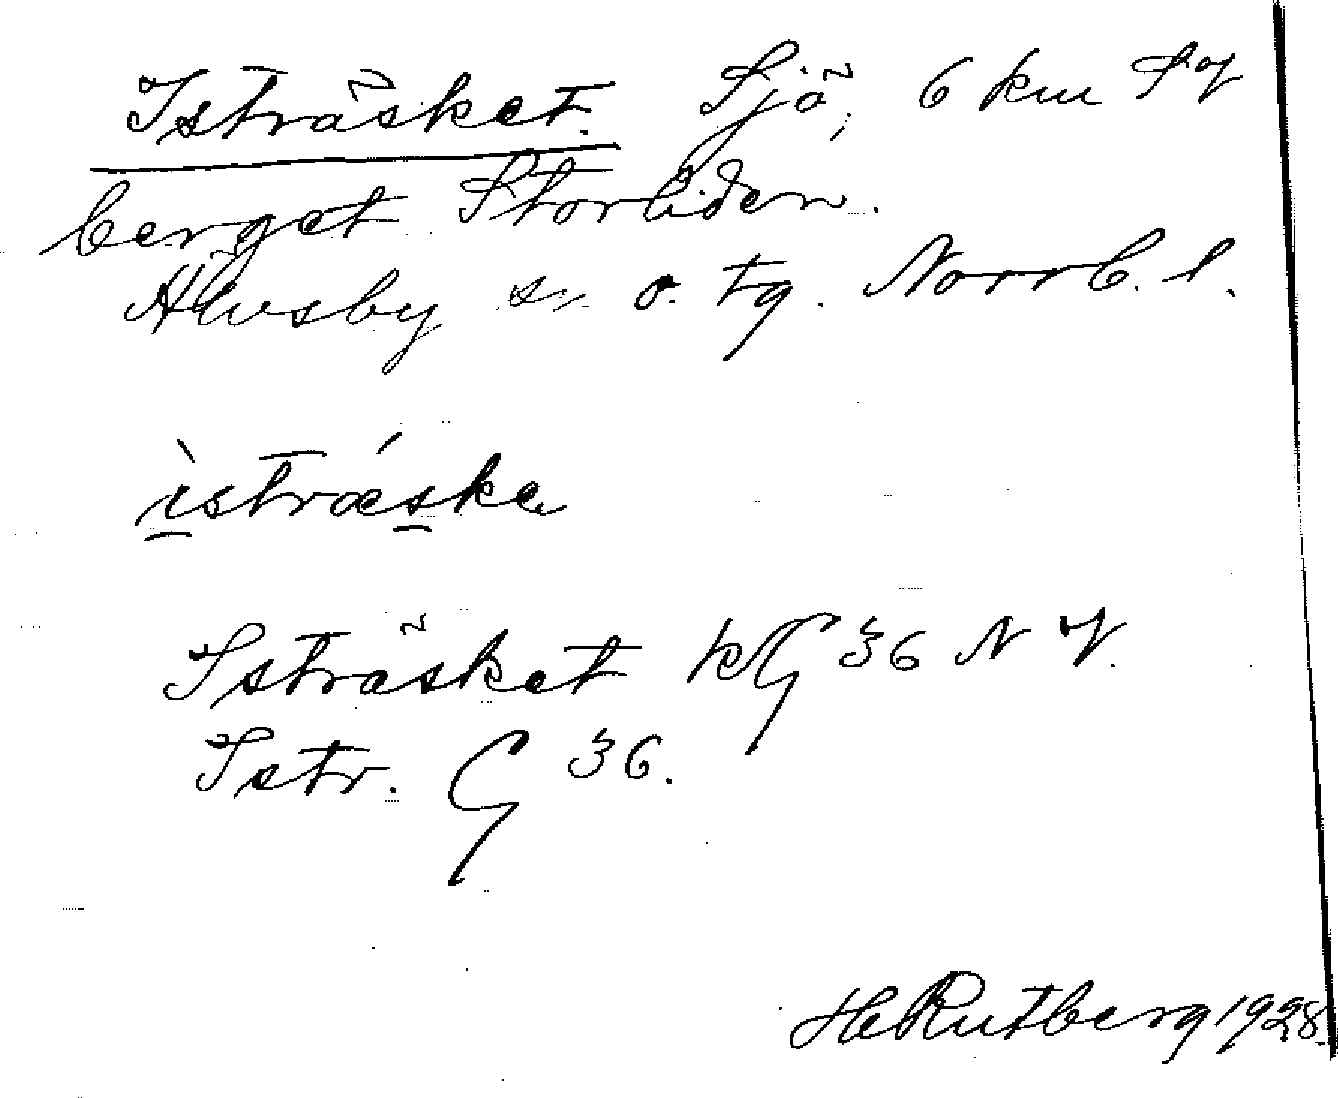 Isträsket. Sjö, 6 km SV
berget Storliden.
Älvsby sn o. tg. Norrb. l.
ìstrǽska
Isträsket kG 36 NV.
Istr. G 36.
HRutberg 1928.